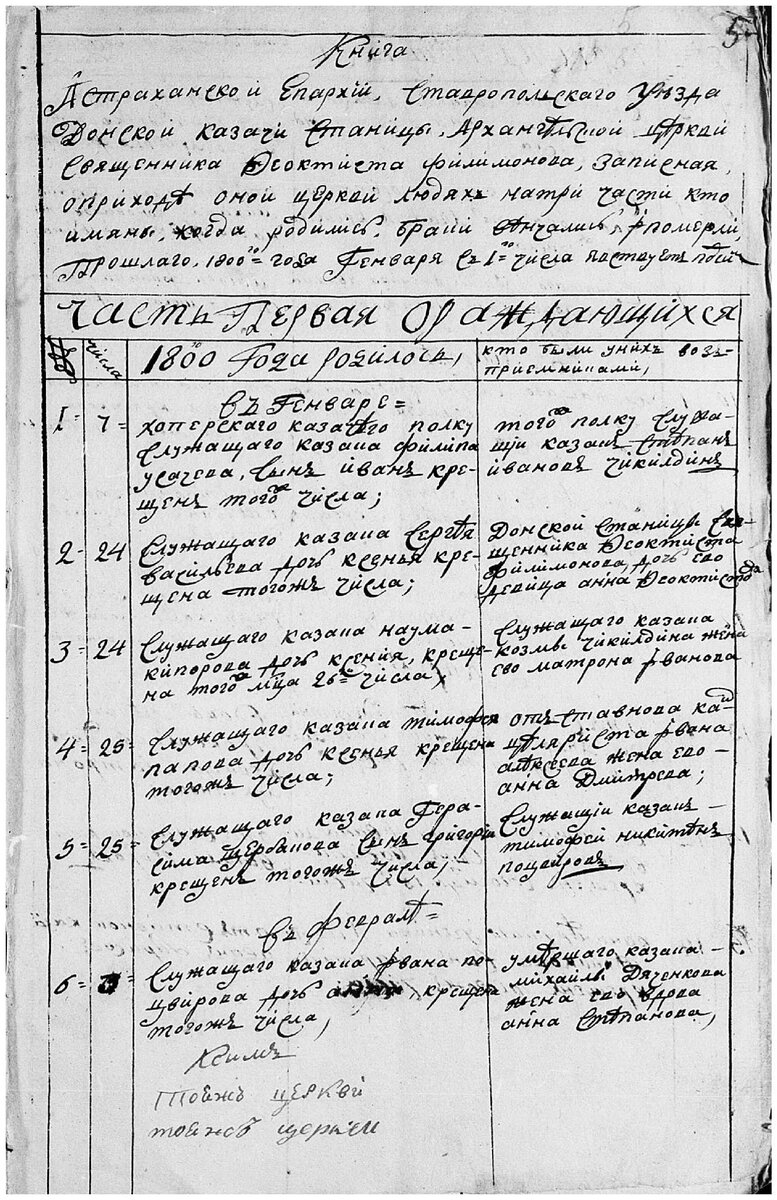 5
Книга
Астраханской Епархїй, Ставропольскаго уѣзда
Донской казачи Станицы, Архангѣльской церквй
священника Ѳеоктиста Филимонова, Записная,
оприходѣ оной церквй людяхъ натри части кто
имяны, когда родились, браки вѣнчались, и померлй,
Прошлаго, 1800го= года Генваря съ 1го= числа
часть Первая ораждающихся
№
числа
1800го Года родилось,
кто были унихъ воз-
приемниками,
въ Генваре=
1= 7=
хоперскаго казачего полку
служащаго казака филипа
усачева, сынъ иванъ кре-
щенъ того числа;
того полку служа-
щи казакъ Стѣпанъ
ивановъ чикилдинъ
2= 24
Служащаго казака Сергѣя
васильева дочь ксенья кре-
щена тогожъ числа;
Донской Станицы свя-
щенника Ѳеоктиста
Филимонова, дочь ево
девица анна Ѳеоктистова
3= 24
Служащаго казака наума-
кипорова дочь ксения, креще-
на того мца 26го числа;
Служащаго казака
козмы чикилдина жена
ево матрона иванова
4= 25=
Служащаго казака тимофея
папова дочь ксенья крещена
тогожъ числа;
отъставнова кан-
целяриста ивана
алѣксеева жена ево-
анна Дмитрева;
5= 25=
Служащаго казака Гера-
сима щербакова сынъ григорій
крещенъ тогожъ числа;
Служащіи казакъ-
тимофей никитѣнъ
поцвировъ
въ Февралѣ=
6=
Служащаго казака ивана по-
цвирова дочь крещена
тогожъ числа,
умѣршаго казака-
михайлы Дяченкова
жена ево вдова
анна Стѣпанова,
Ксимъ
тоежъ церквй
тоежъ церкви